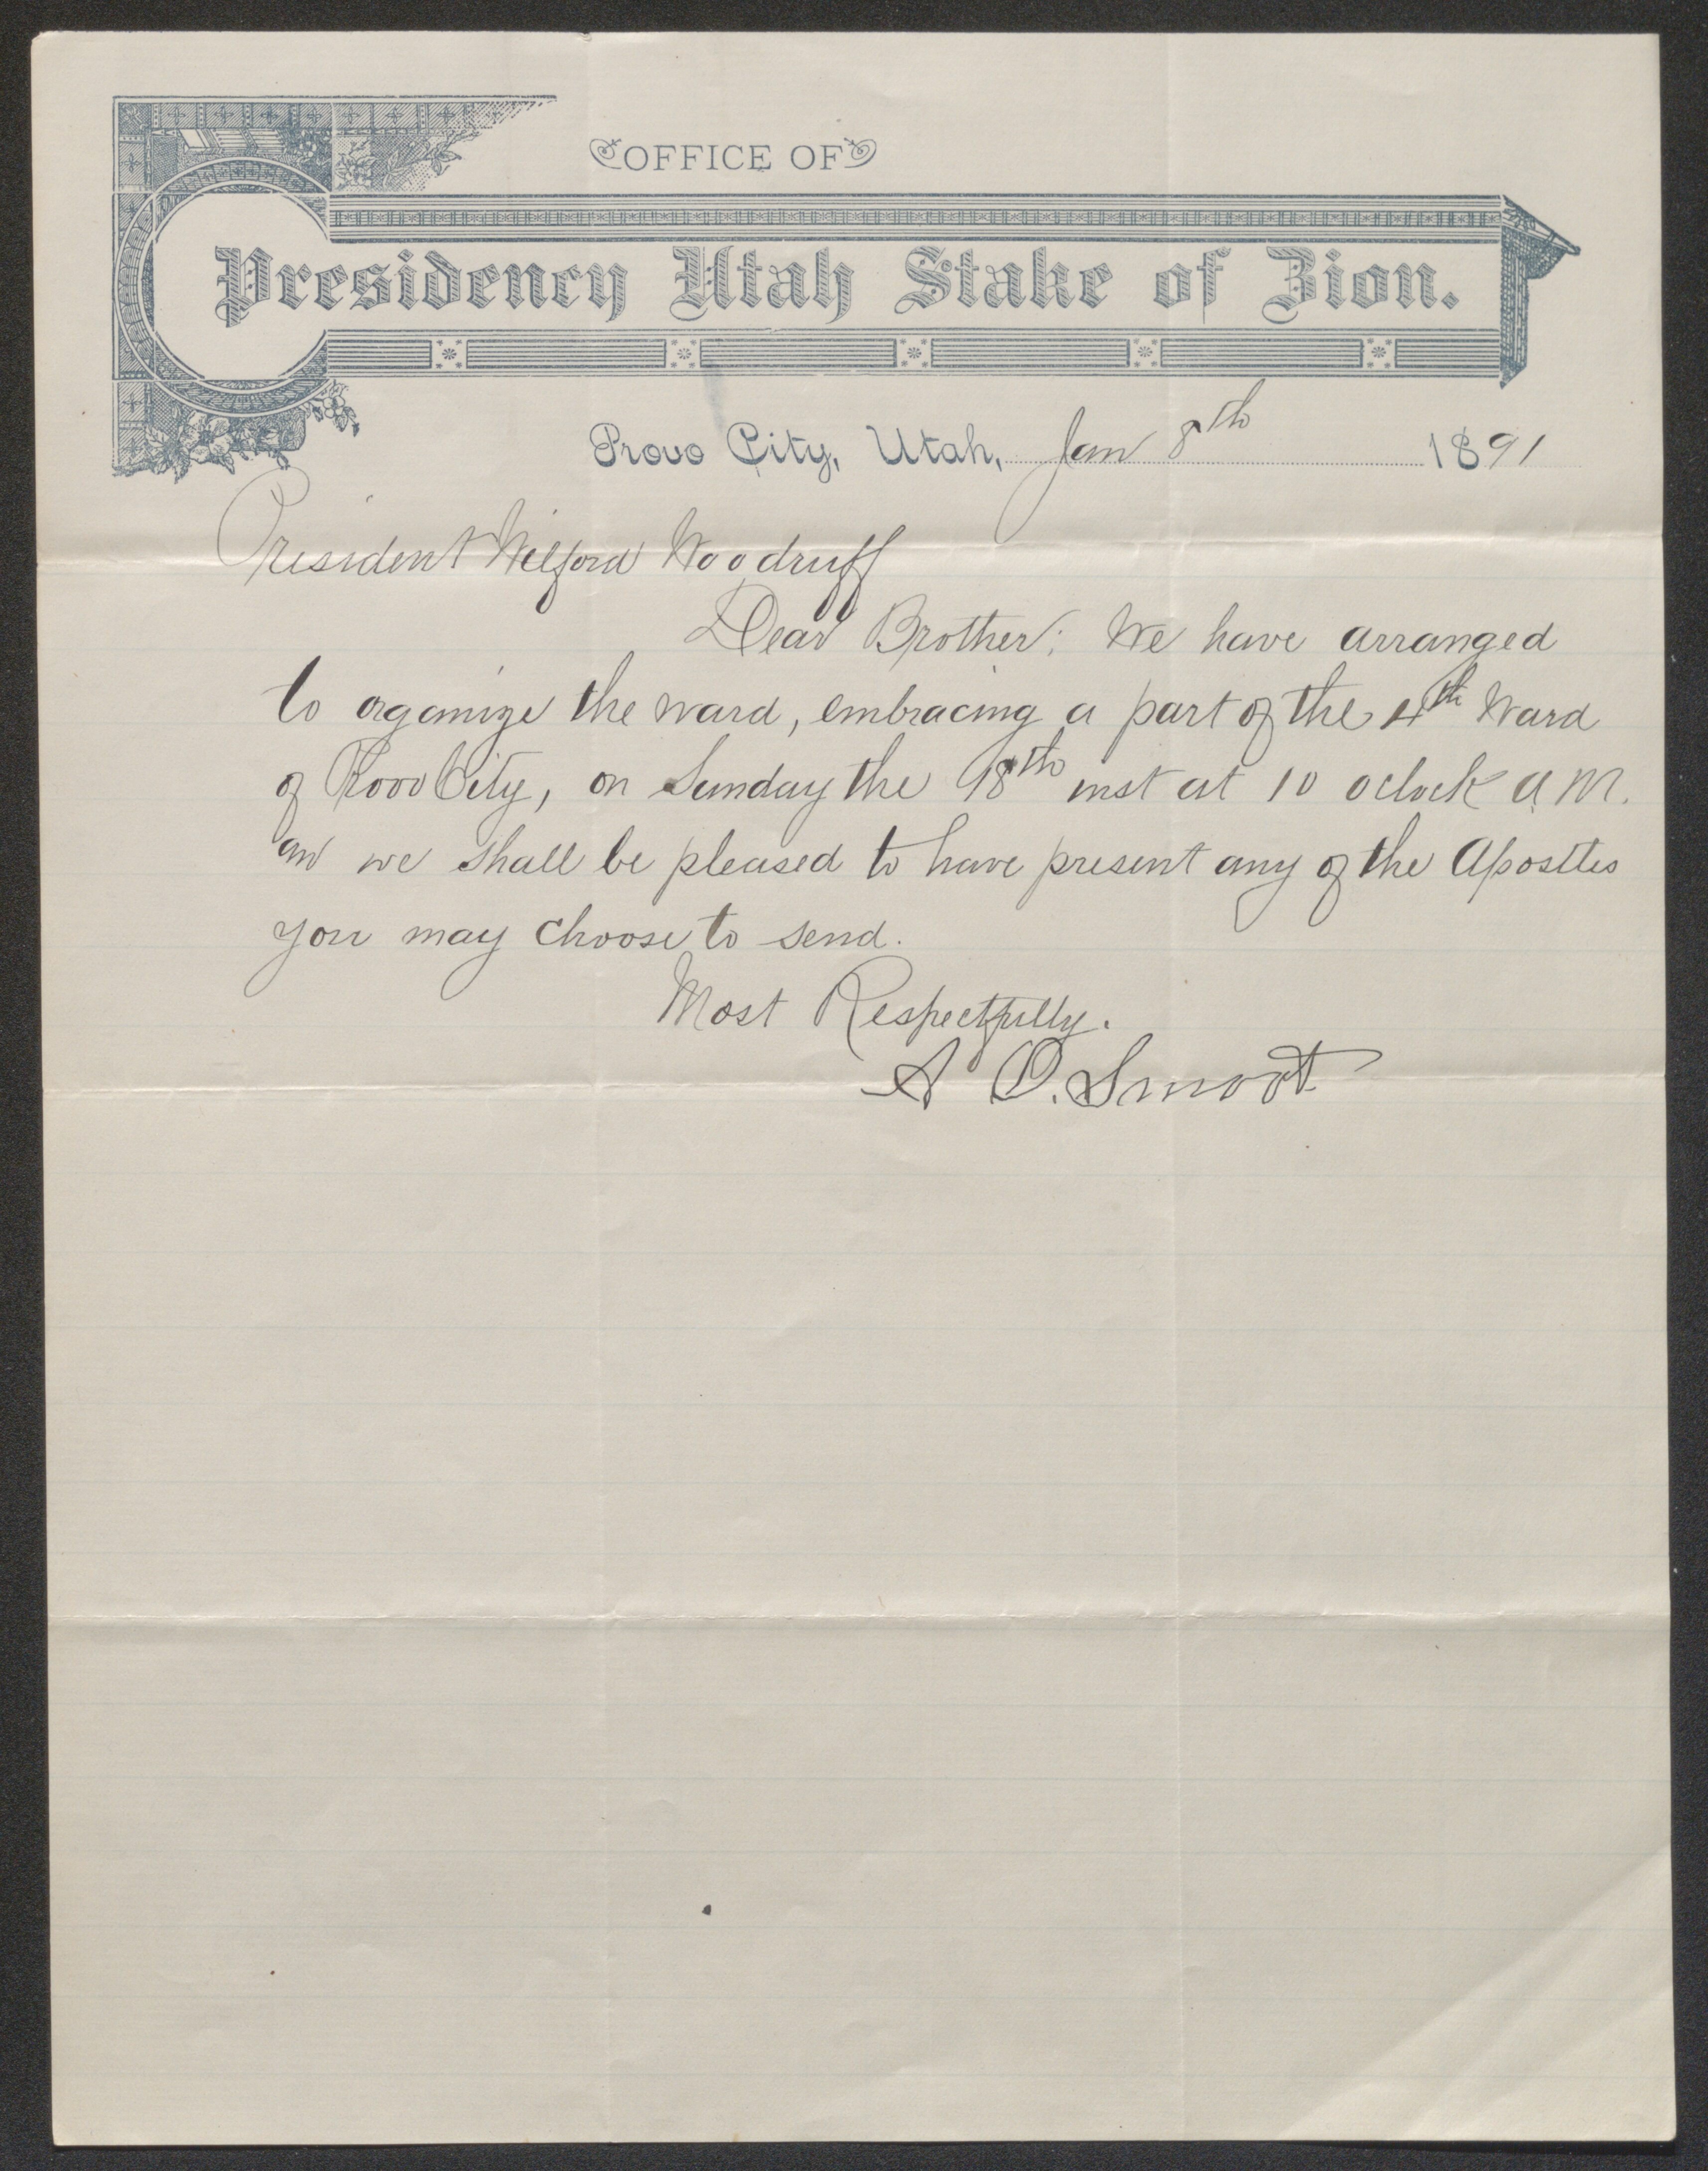 OFFICE OF
Presidency Utah Stake of Zion.
Provo City, Utah, Jan 8th 1891
President Wilford Woodruff
Dear Brother: We have arranged
to organize the ward, embracing a part of the 4th Ward
of Provo City, on Sunday the 18th inst at 10 oclock A M.
and we shall be pleased to have present any of the Apostles
you may choose to send.
Most Respectfully.
A O. Smoot